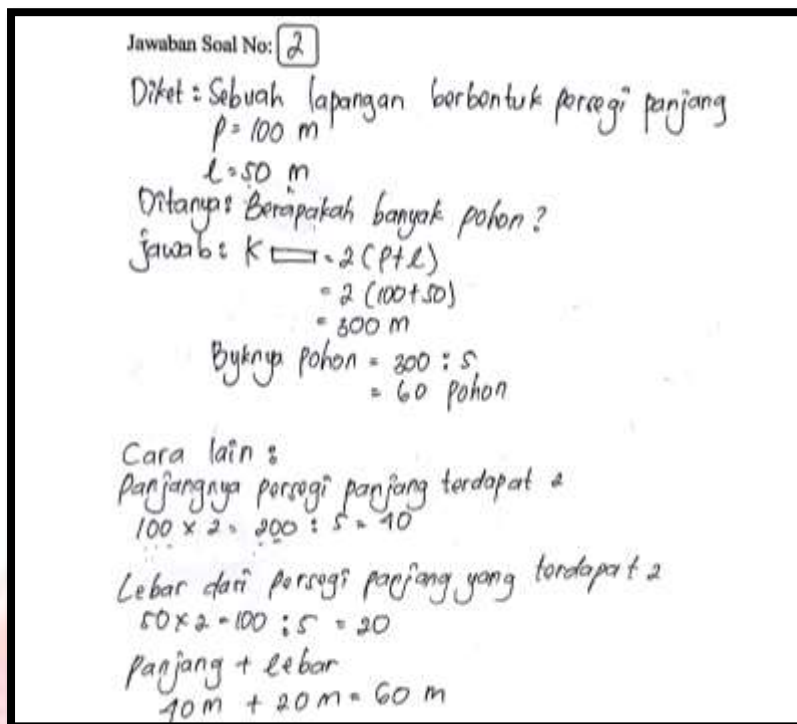 Jawaban Soal No: 2
Diket : Sebuah lapangan berbentuk persegi panjang
p = 100 m
l = 50 m
Ditanya : Berapakah banyak pohon ?
jawab : K ▭ = 2 (p+l)
= 2 (100+50)
= 300 m
Byknya pohon = 300 : 5
= 60 pohon
Cara lain :
Panjangnya persegi panjang terdapat 2
100 x 2 = 200 : 5 = 40
Lebar dari persegi panjang yang terdapat 2
50 x 2 = 100 : 5 = 20
Panjang + lebar
40 m + 20 m = 60 m